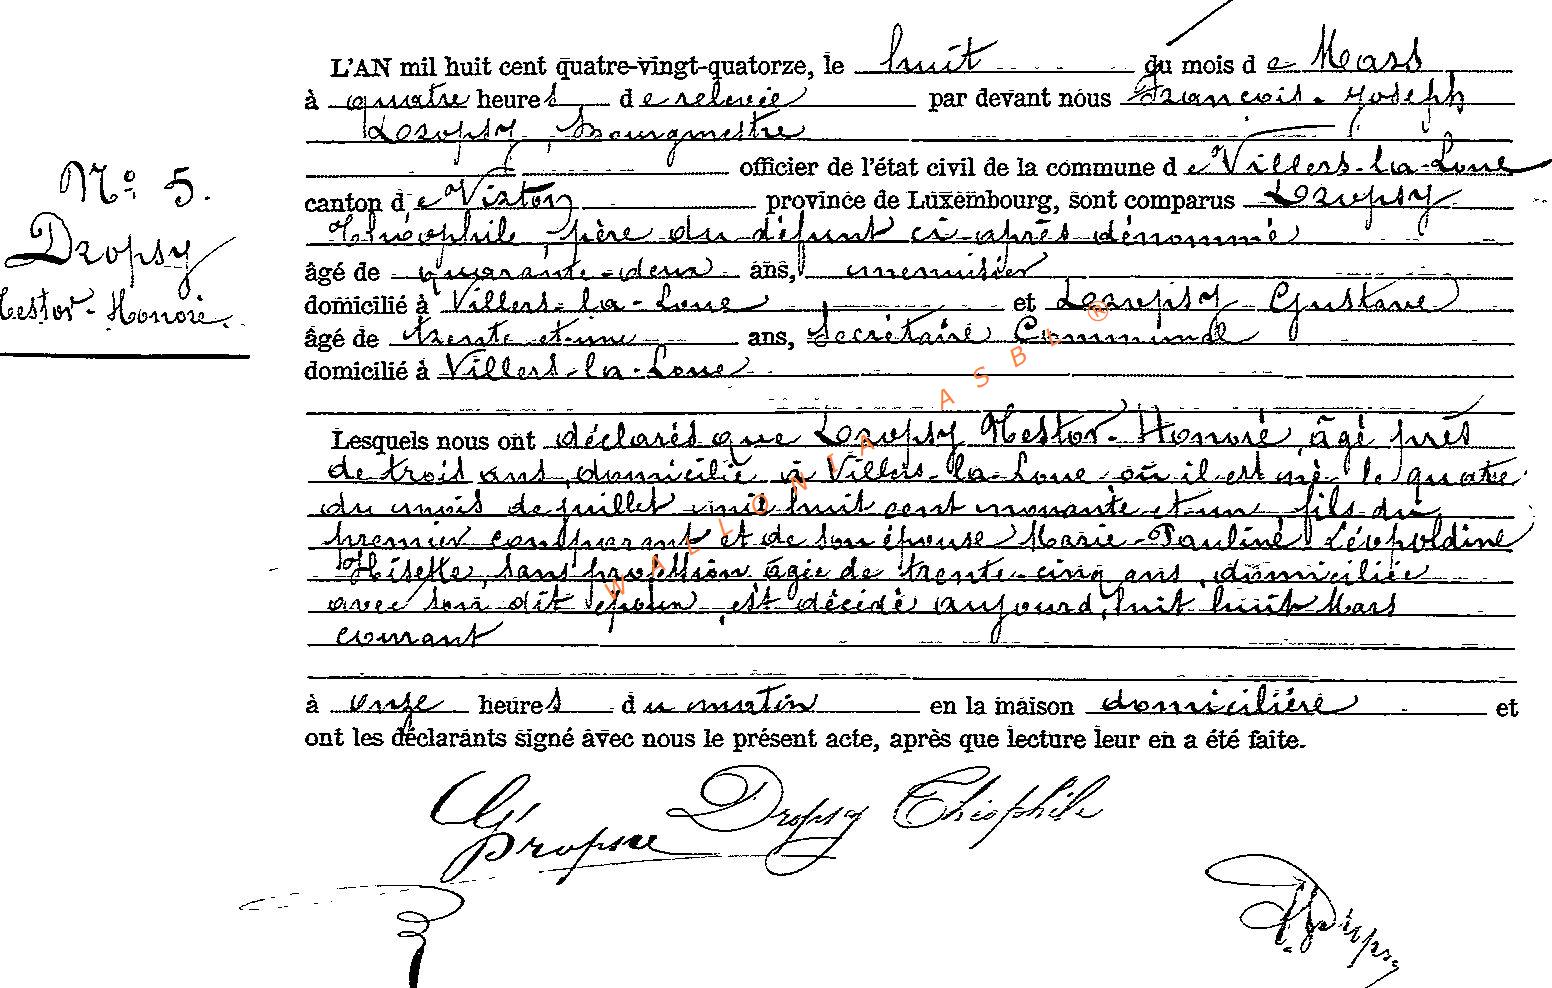 L'AN mil huit cent quatre-vingt-quatorze, le huit du mois de Mars
à quatre heures de relevée par devant nous François-Joseph
Dropsy, Bourgmestre
officier de l'état civil de la commune de Villers-la-Loue
canton de Virton province de Luxembourg, sont comparus Dropsy
Théophile, père du défunt ci-après dénommé
âgé de quarante-deux ans, menuisier
domicilié à Villers-la-Loue et Dropsy Gustave
âgé de trente et une ans, Secrétaire Communal
domicilié à Villers-la-Loue
Lesquels nous ont déclarés que Dropsy Nestor-Honoré, âgé près
de trois ans, domicilié à Villers-la-Loue où il est né le quatre
du mois de juillet mil huit cent nonante et un fils du
premier comparant et de son épouse Marie-Pauline Léopoldine
Hisette, sans profession âgée de trente-cinq ans, domiciliée
avec son dit époux, est décédé aujourd'huit huit Mars
courant
à onze heures du matin en la maison domicilière et
ont les déclarants signé avec nous le présent acte, après que lecture leur en a été faite.
N° 5.
Dropsy
Nestor-Honoré.
Dropsy Théophile
Dropsy
WALLONIA ASBL ®